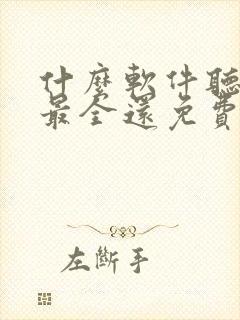 什麼軟件聽
最全還免費
左斷手